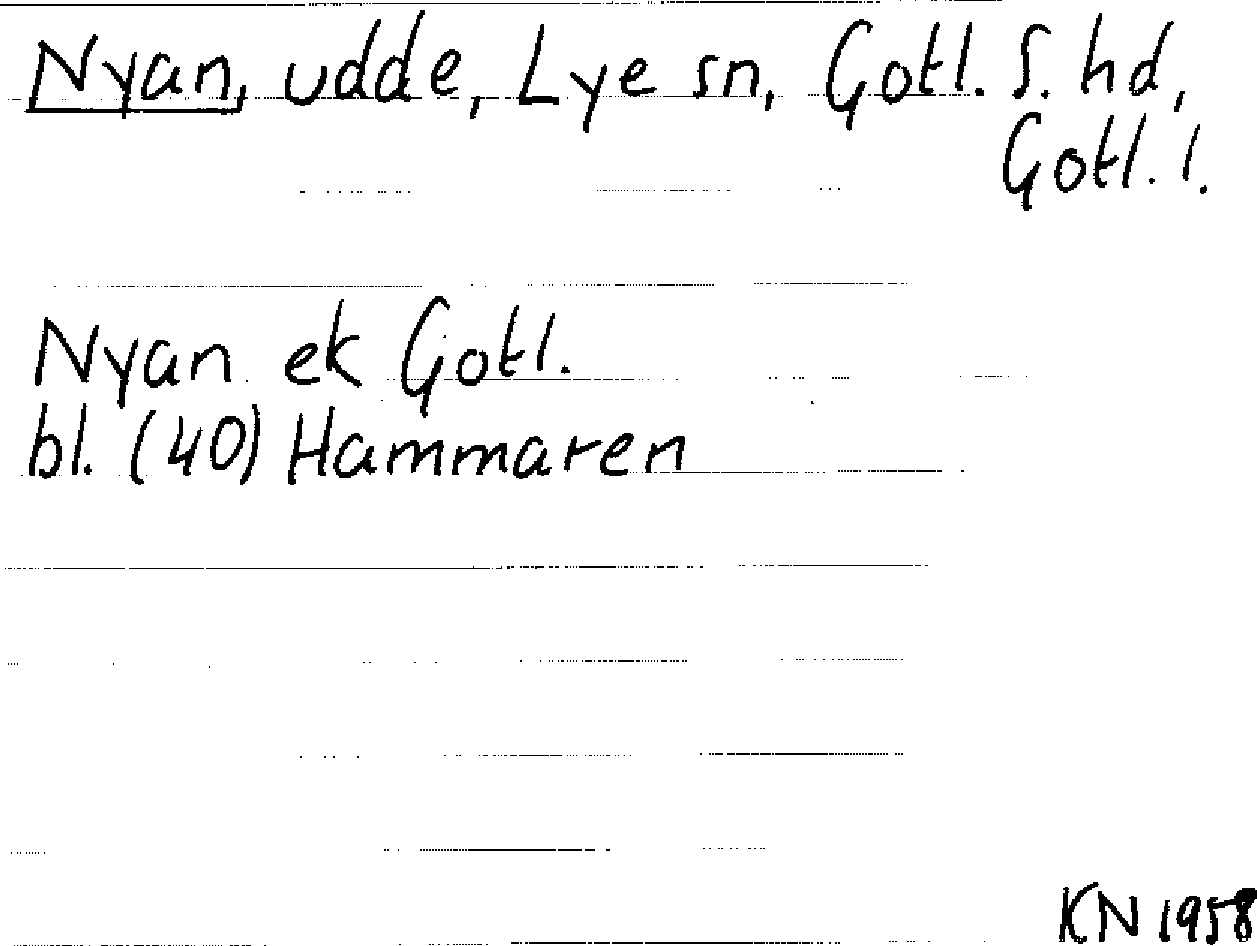 Nyan, udde, Lye sn, Gotl. S. hd,
Gotl. l.
Nyan ek Gotl.
bl. (40) Hammaren
KN 1958